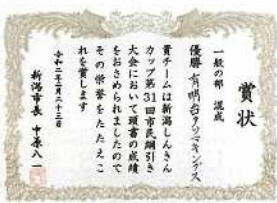 賞状
一般の部 混成
優勝 有明台タツマキングス
貴チームは新潟しんきん
カップ第31回市民綱引き
大会において頭書の成績
をおさめられましたので
その栄誉をたたえこ
れを賞します
令和二年二月二十三日
新潟市長 中原八一